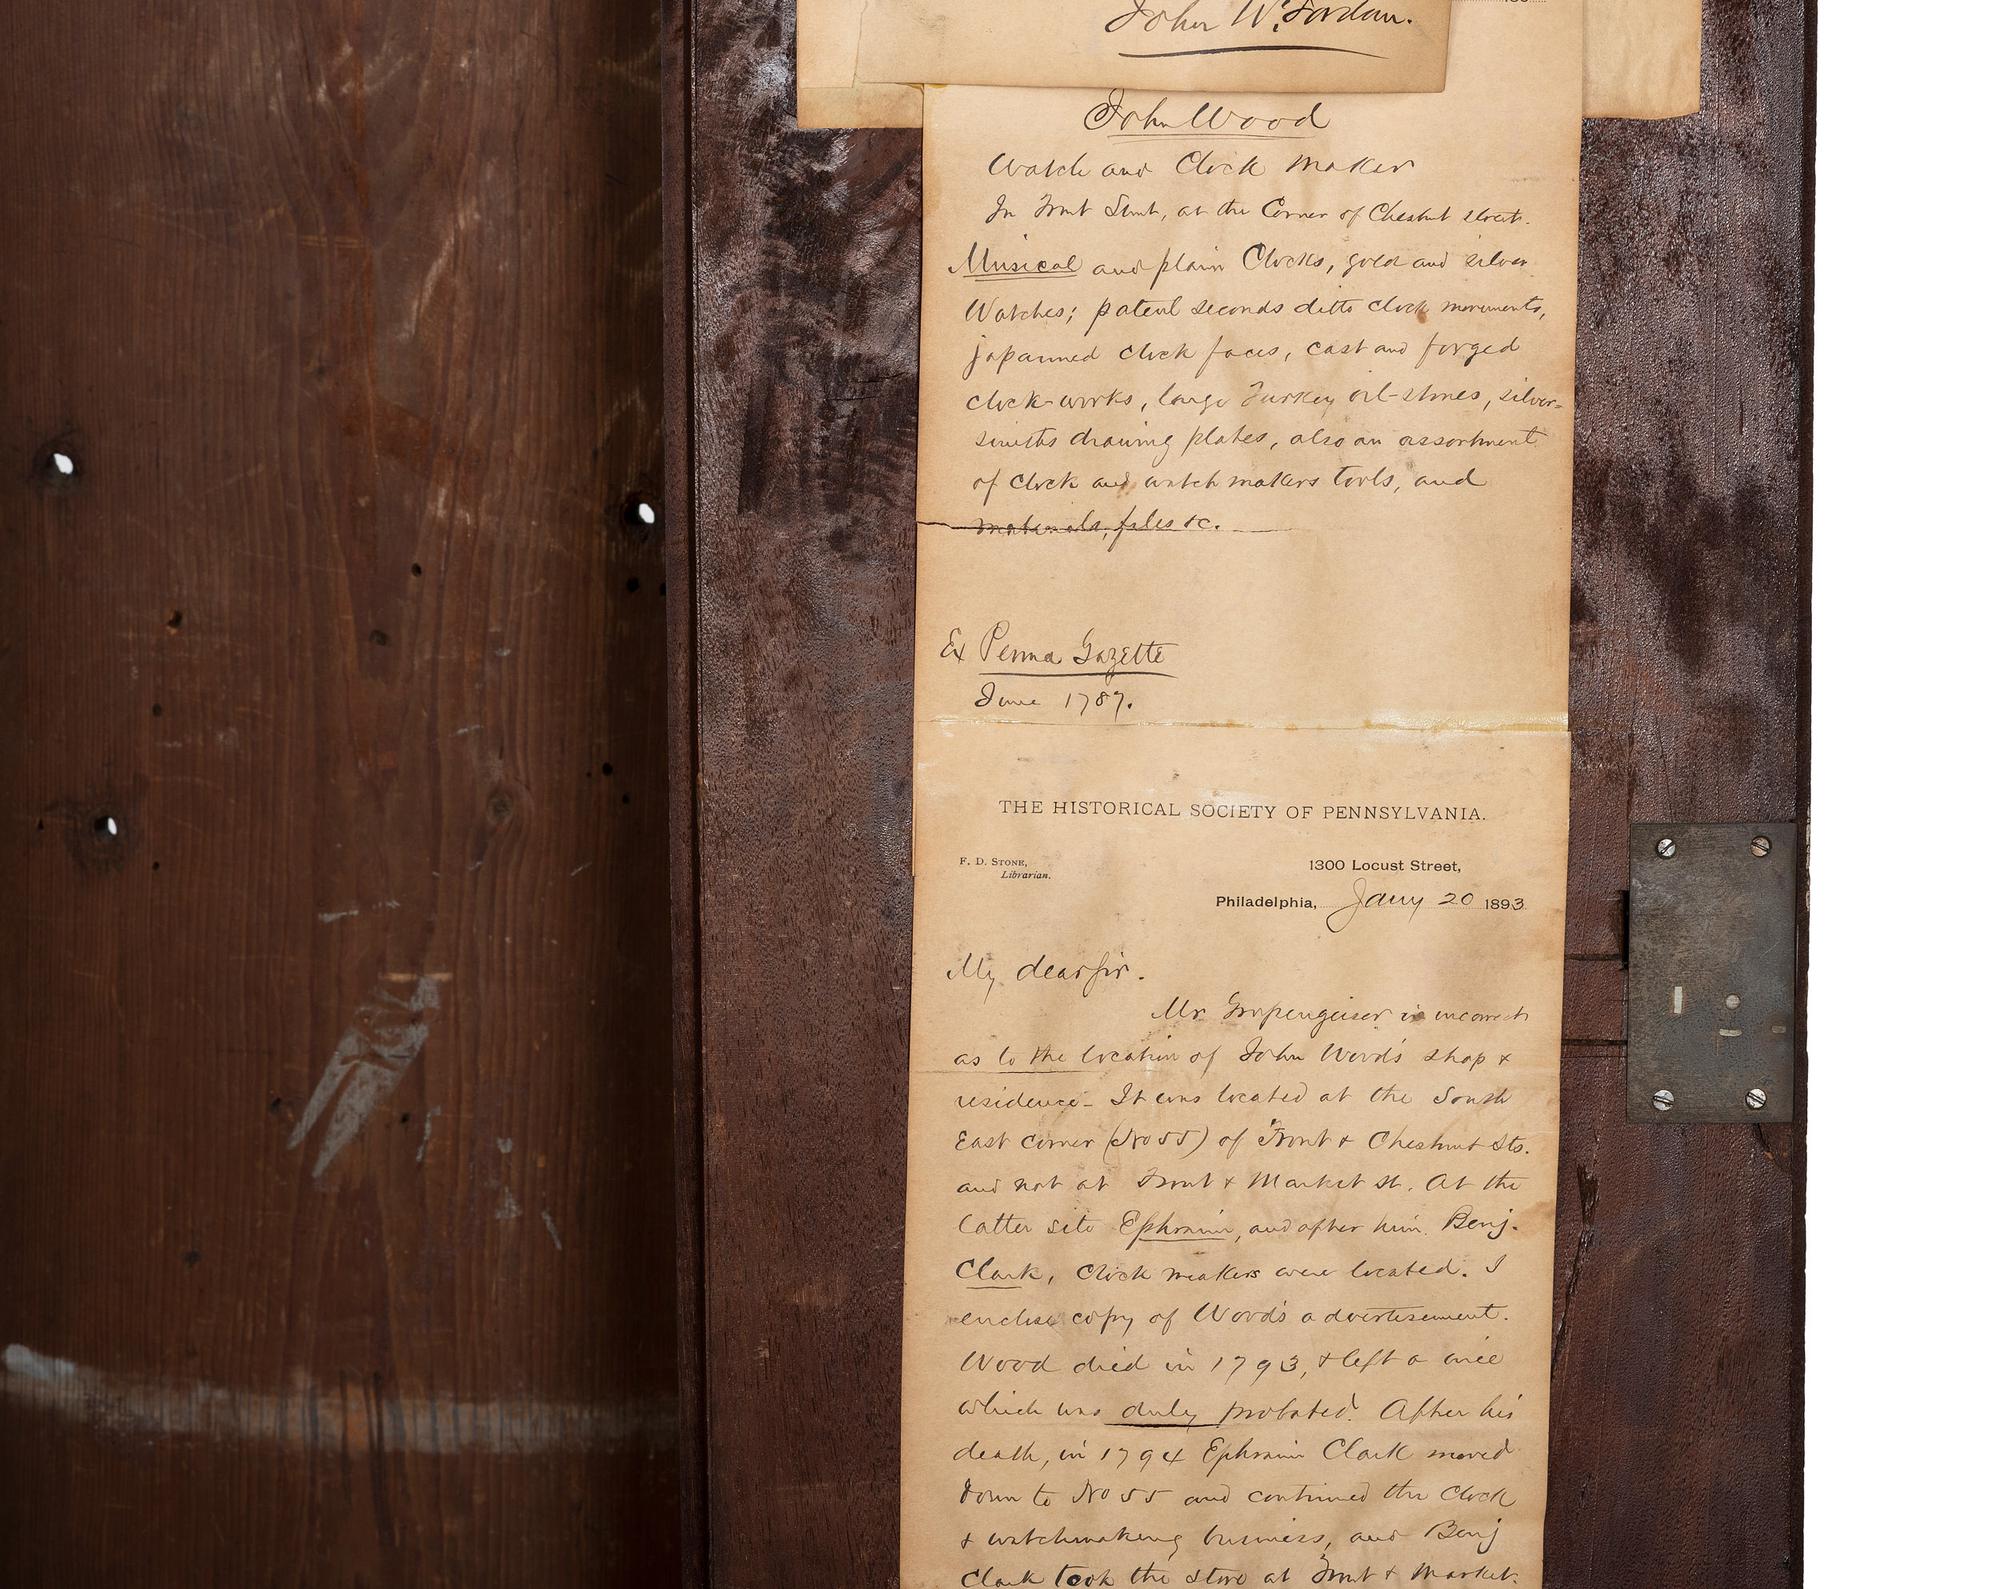 John W. Jordan.
John Wood
Watch and Clock Maker
In Front Street, at the Corner of Chestnut street.
Musical and plain Clocks, gold and silver
Watches; patent seconds ditto clock movements,
japanned clock faces, cast and forged
clock-works, large Turkey oil-stones, silver-
smiths drawing plates, also an assortment
of clock and watch makers tools, and
materials, files &c.
Ex Penna Gazette
June 1787.
THE HISTORICAL SOCIETY OF PENNSYLVANIA.
F. D. STONE,
Librarian.
1300 Locust Street,
Philadelphia, Jany 20 1893
My dear sir.
Mr Gropengeiser is incorrect
as to the location of John Wood's shop &
residence - It was located at the South
East corner (No 55) of Front & Chestnut Sts.
and not at Front & Market St. At the
latter site Ephraim, and after him Benj.
Clark, Clock makers were located. I
enclose copy of Wood's advertisement.
Wood died in 1793, & left a will
which was duly probated. After his
death, in 1794 Ephraim Clark moved
down to No 55 and continued the Clock
& watchmaking business, and Benj
Clark took the store at Front & Market.